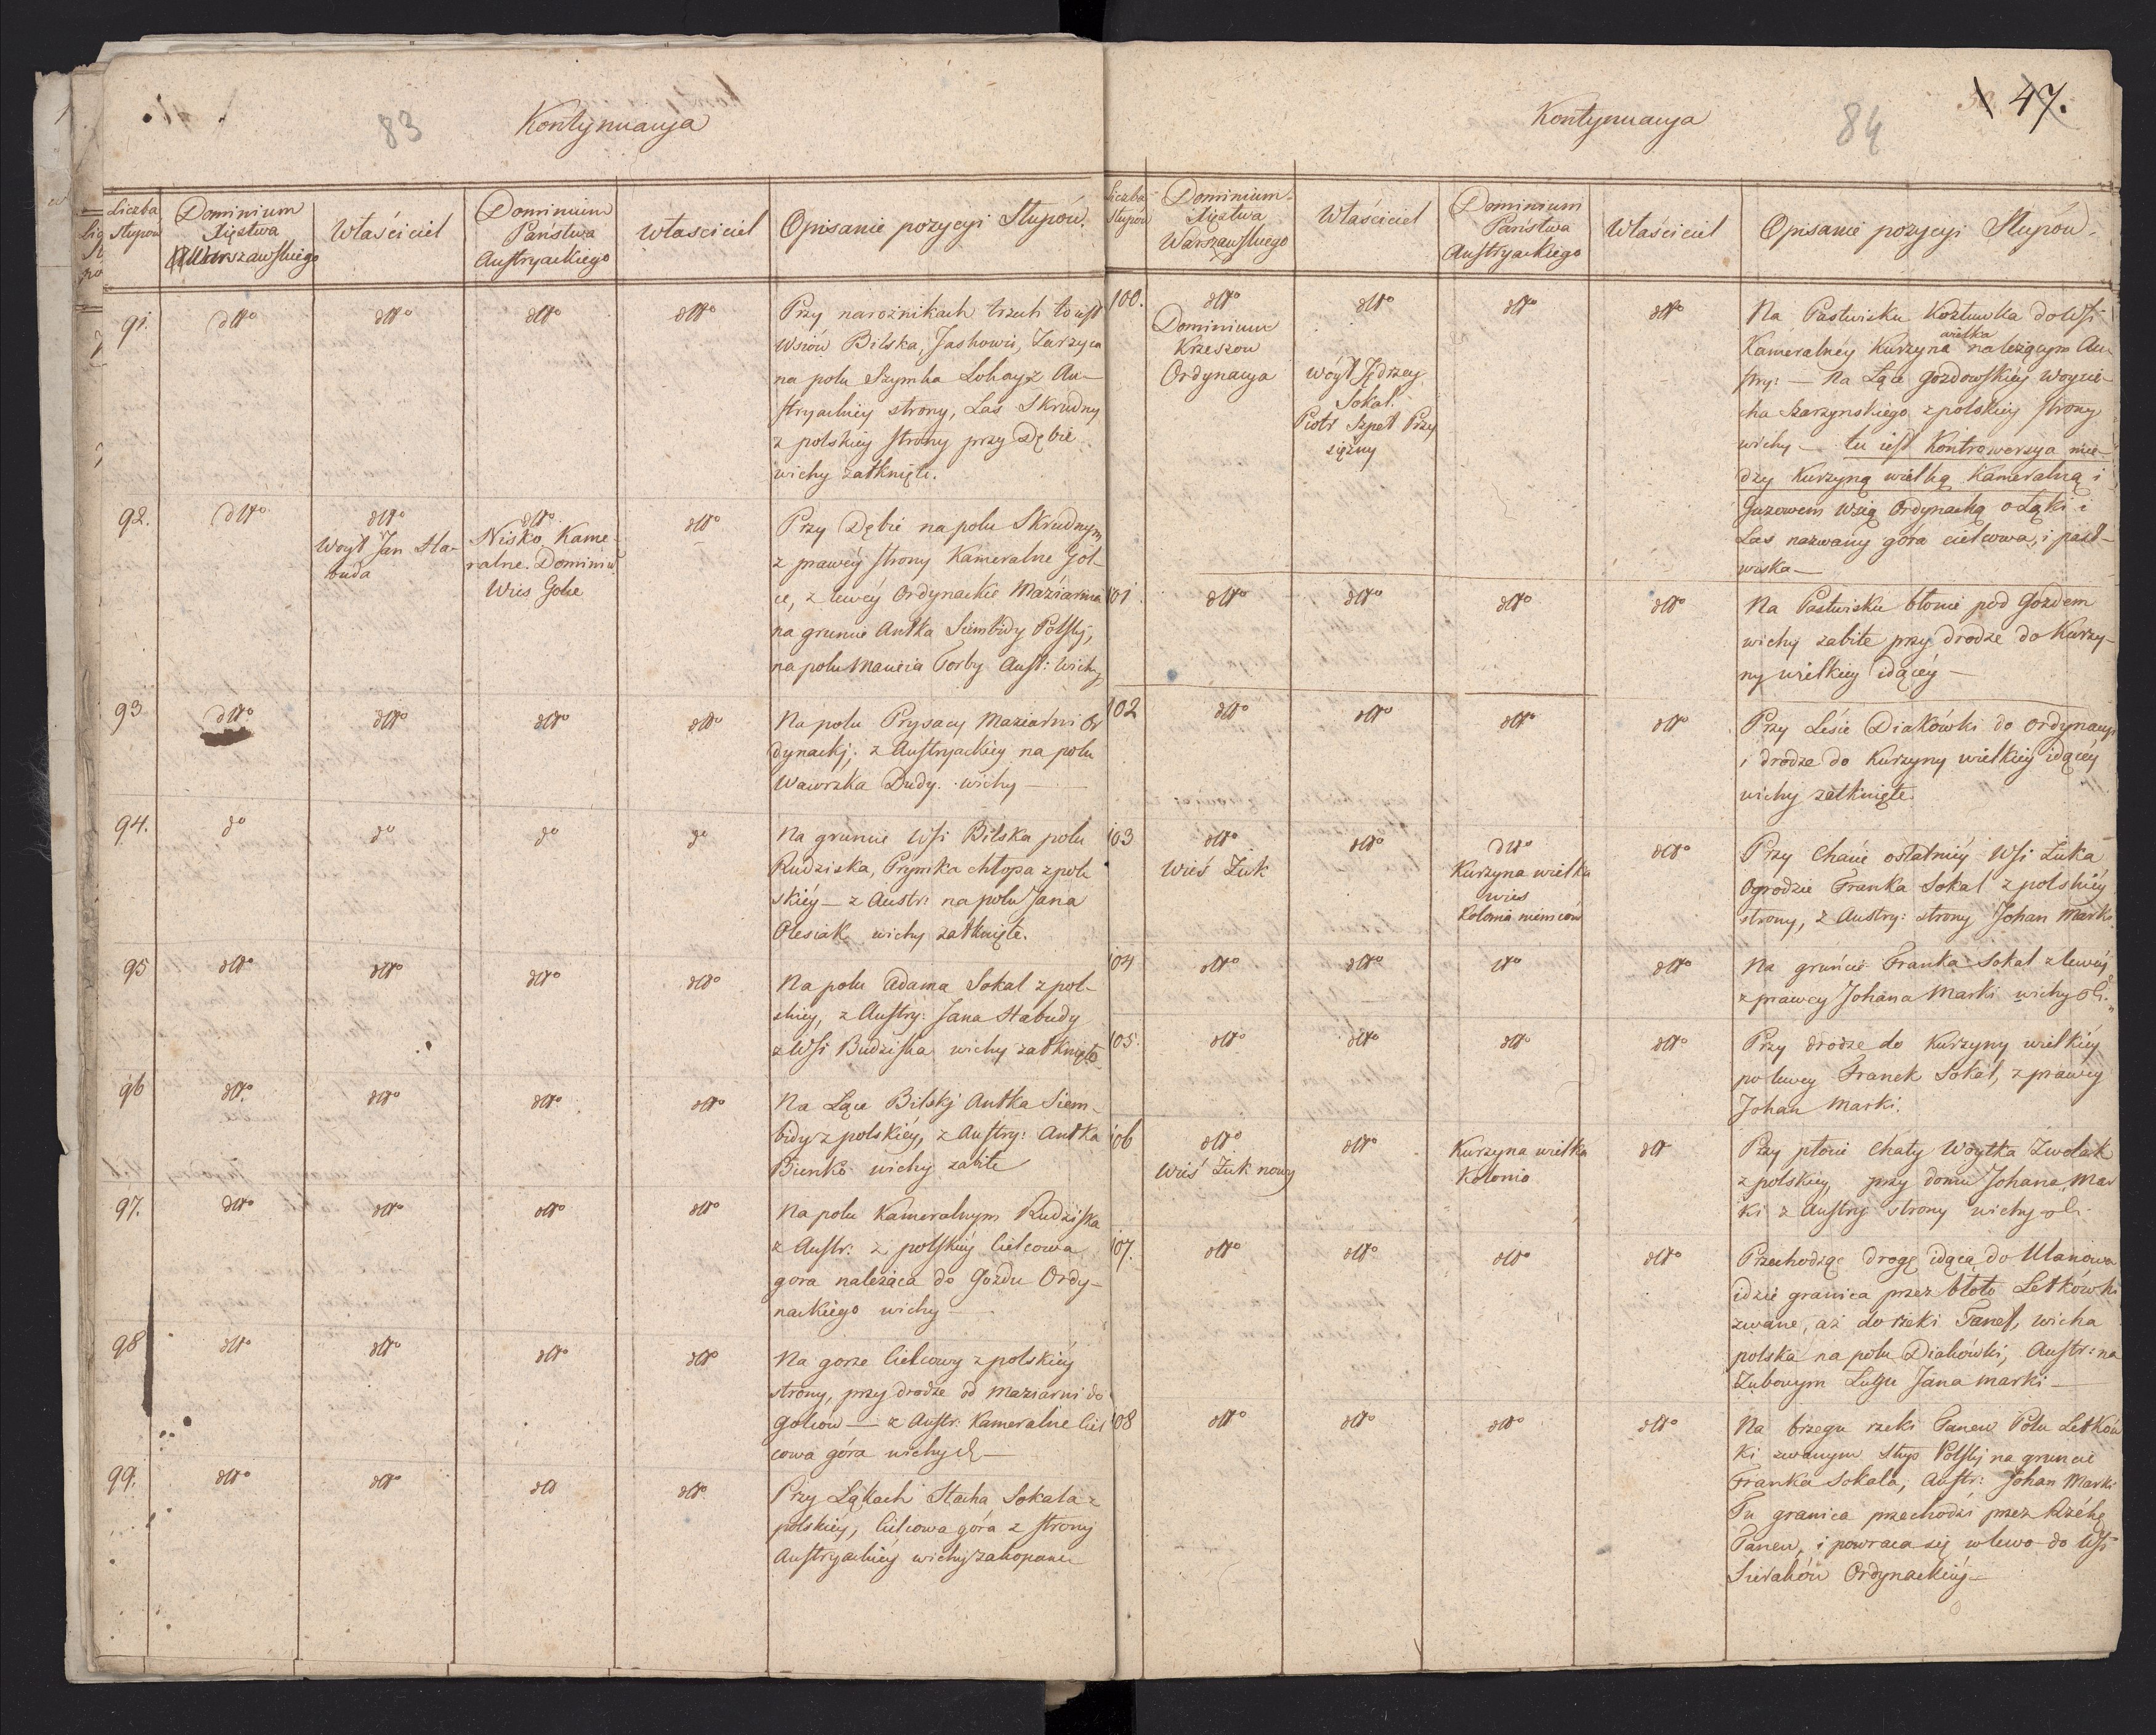 83
Kontynuacya
Liczba Słupow
Dominium Xięstwa Warszawskiego
Właściciel
Dominium Państwa Austryackiego
Właściciel
Opisanie pozycyi Słupów.
91.
dtto
dtto
dtto
dtto
Przy narożnikach trzech to iest
wsiow Bilska, Jashowii, Zarzyca
na polu Szymka Lohayz Au-
stryackiey strony, Las Skrudny
z polskiey strony przy Dębie
wichy zatknięte.
92.
dtto
dtto
Woyt Jan Sta-
buda
dtto
Nisko Kame-
ralne Dominiu
Wies Golce
dtto
Przy Dębie na polu Skrudnym
z prawéy strony Kameralne Gol-
ce, z lewéy Ordynackie Maziarnia
na gruncie Antka Siembidy Polsky,
na polu Maucia Torby Aust: wichy
93
dtto
dtto
dtto
dtto
Na polu Prysacy Maziarni Or
dynackj; z Austryackiey na polu
Wawrzka Dudy. wichy —
94.
do
do
do
do
Na gruncie Wsi Bilska polu
Rudziska, Prymka chłopa z pol-
skiéy — z Austr: na polu Jana
Olesiak wichy zatknięte.
95
dtto
dtto
dtto
dtto
Na polu Adama Sokal z pol-
skiey, z Austry: Jana Stabudy
z Wsi Budziska wichy zatknięte
96
dtto
dtto
dtto
dtto
Na Łące Bilskj Antka Siem-
bidy z polskiéy, z Austry: Antka
Bienko wichy zabite
97.
dtto
dtto
dtto
dtto
Na polu Kameralnym Rudziska
z Austr: z polskiéy Cielcowa
gora należąca do Gozdu Ordy-
nackiego wichy —
98
dtto
dtto
dtto
dtto
Na gorze Cielcowy z polskiéy
strony, przy drodze od Maziarni do
golców — z Austr: Kameralne Ciel
cowa góra wichy
99.
dtto
dtto
dtto
dtto
Przy Łąkach Stacha Sokala z
polskiéy, Cielcowa góra z strony
Austryackiéy wichy zakopane
Kontynuacya
84
47.
Liczba Słupow
Dominium Xięstwa Warszawskiego
Właściciel
Dominium Państwa Austryackiego
Właściciel
Opisanie pozycyi Słupów.
100.
dtto
Dominium
Krzeszow
Ordynacya
dtto
Wóyt Jędrzey
Sokal.
Piotr Szpet Przy
siężny
dtto
dtto
Na Pastwisku Kozłuwka do Wsi
Kameralnéy Kurzyna wielka należącym Au
stry: — Na Łące gozdowskiéy Woycie-
cha Szarzynskiego z polskiéy strony
wichy — tu iest Kontrowersya mie-
dzy Kurzyną wielką Kameralną i
Gozowem wsią Ordynacką o Łąki i
Las nazwany góra cielcowa, i past-
wiska —
101
dtto
dtto
dtto
dtto
Na Pastwisku błonie pod Gozdem
wichy zabite przy drodze do Kurzy-
ny wielkiey idącéy —
102
dtto
dtto
dtto
dtto
Przy Lésie Diakówki do Ordynacyi
i drodze do Kurzyny wielkiéy idącéy
wichy zatknięte.
103
dtto
Wieś Żuk
dtto
dtto
Kurzyna wielka
wies
Kolonia niemców
dtto
Przy Chacie ostatniéy Wsi Żuka
Ogrodzie Franka Sokal z polskiéy
strony, z Austry: strony Johan Marki
104
dtto
dtto
dtto
dtto
Na gruńcie Franka Sokal z lewéy
z prawey Johana Marki wichy
105.
dtto
dtto
dtto
dtto
Przy drodze do Kurzyny wielkiéy
po lewey Franek Sokal, z prawey
Johan Marki.
106
dtto
Wieś Żuk nowy
dtto
Kurzyna wielka
Kolonio
dtto
Przy płocie Chaty Woytka Zwolak
z polskiéy, przy domu Johana Mar
ki z Austry strony wichy
107.
dtto
dtto
dtto
dtto
Przechodząc drogę idącą do Ulanowa
idzie granica przez błoto Letkówki
zwane, aż do rzeki Tanef, wicha
polska na polu Diakówki, Austr: na
Zubowym Ługu Jana Marki —
108
dtto
dtto
dtto
dtto
Na brzegu rzeki Tanew Polu Letków
ki zwanym słup Polsky na gruncie
Franka Sokala, Austr: Johan Marki
Tu granica przechodzi przez Rzékę
Tanew, i powraca się w lewo do Wsi
Sieraków Ordynackiéy —